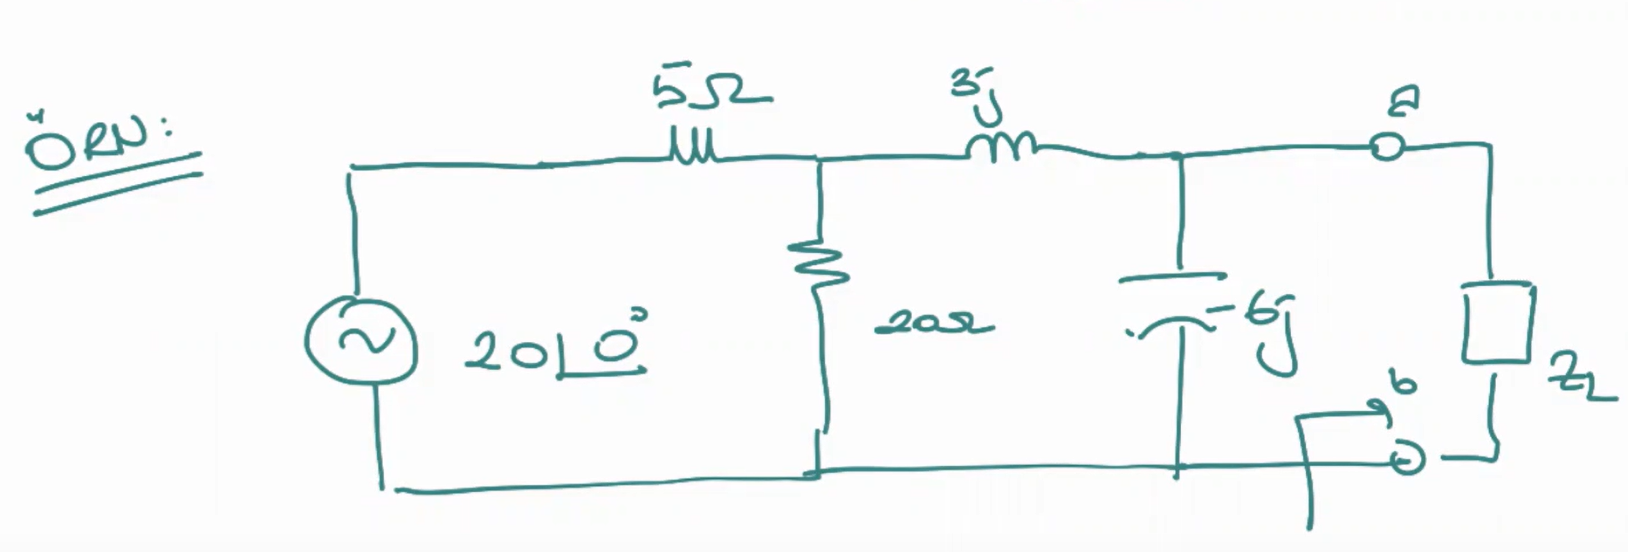 ÖRN:
5Ω
3j
a
20∠0°
20Ω
-6j
Z_L
b